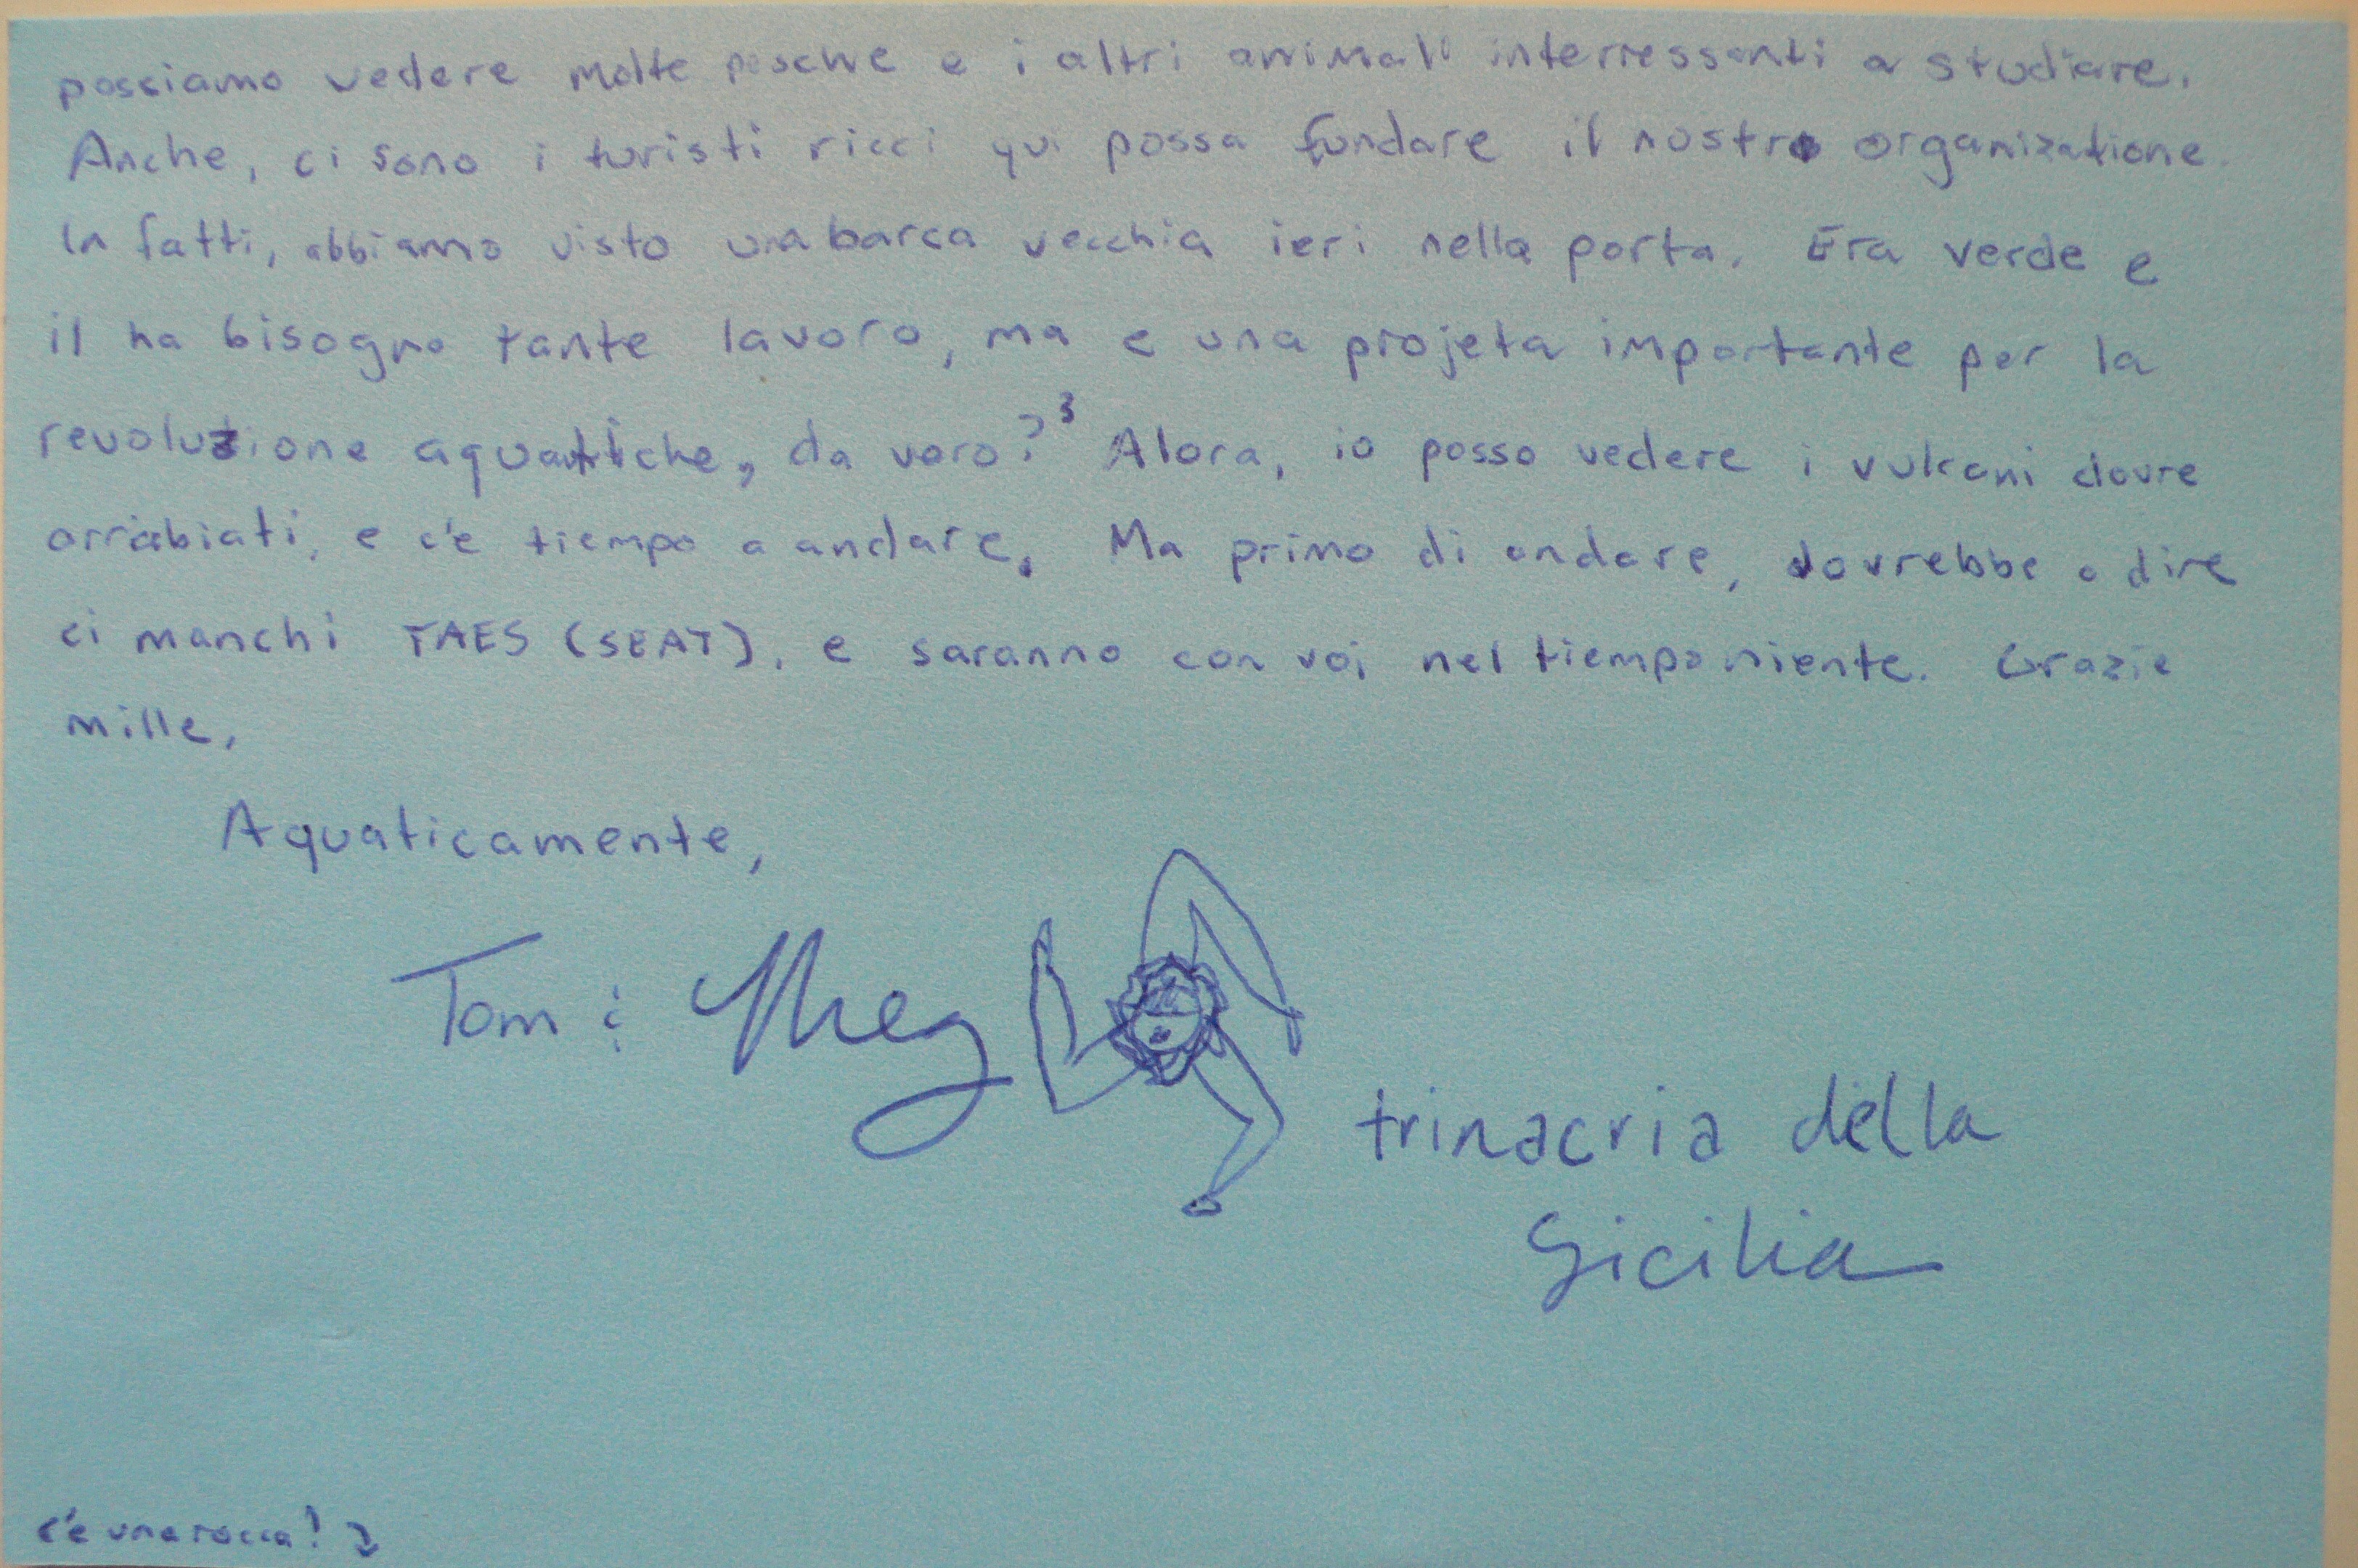 possiamo vedere molte pesche e i altri animali interressanti a studiare.
Anche, ci sono i turisti ricci qui possa fundare il nostro organizatione.
In fatti, abbiamo visto una barca vecchia ieri nella porta. Era verde e
il ha bisogno tante lavoro, ma e una projeta importante per la
revoluzione aquatiche, da voro?³ Alora, io posso vedere i vulcani dovre
arrabiati, e c'e tiempo a andare. Ma primo di andare, dovrebbe a dire
ci manchi TAES (SEAT), e saranno con voi nel tiempo niente. Grazie
mille,
Aquaticamente,
Tom & Meg
trinacria della
Sicilia
c'e una rocca! ↓